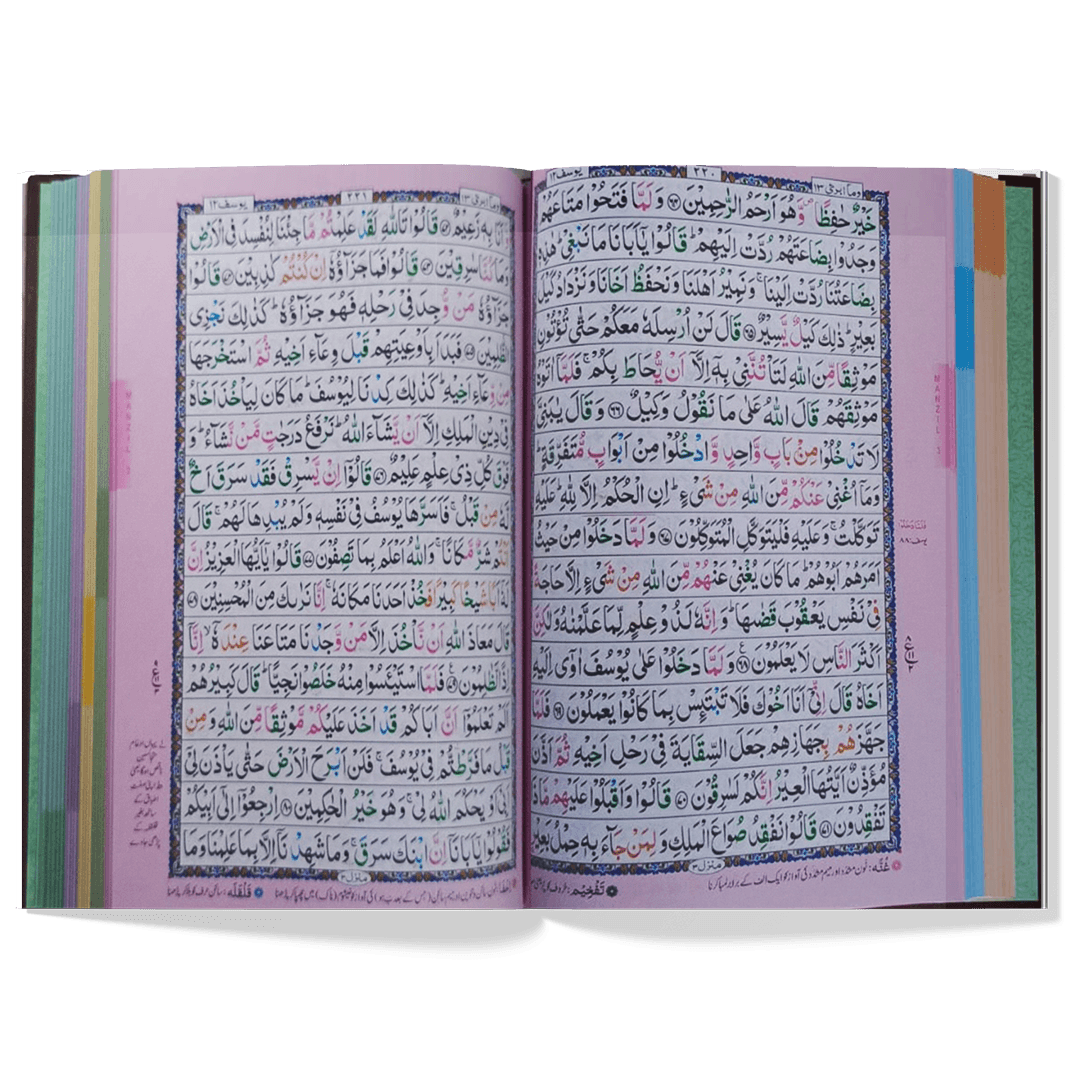 وما ابرئ ۱۳
۲۲۰
یوسف ۱۲
خَيْرٌ حٰفِظًا ۪ وَّهُوَ اَرْحَمُ الرّٰحِمِيْنَ ﴿۶۴﴾ وَلَمَّا فَتَحُوْا مَتَاعَهُمْ
وَجَدُوْا بِضَاعَتَهُمْ رُدَّتْ اِلَيْهِمْ ؕ قَالُوْا يٰۤاَبَانَا مَا نَبْغِىْ ؕ هٰذِهٖ
بِضَاعَتُنَا رُدَّتْ اِلَيْنَا ۚ وَنَمِيْرُ اَهْلَنَا وَنَحْفَظُ اَخَانَا وَنَزْدَادُ كَيْلَ
بَعِيْرٍ ؕ ذٰلِكَ كَيْلٌ يَّسِيْرٌ ﴿۶۵﴾ قَالَ لَنْ اُرْسِلَهٗ مَعَكُمْ حَتّٰى تُؤْتُوْنِ
مَوْثِقًا مِّنَ اللّٰهِ لَتَاْتُنَّنِىْ بِهٖۤ اِلَّاۤ اَنْ يُّحَاطَ بِكُمْ ۚ فَلَمَّاۤ اٰتَوْهُ
مَوْثِقَهُمْ قَالَ اللّٰهُ عَلٰى مَا نَقُوْلُ وَكِيْلٌ ﴿۶۶﴾ وَقَالَ يٰبَنِىَّ
لَا تَدْخُلُوْا مِنْۢ بَابٍ وَّاحِدٍ وَّادْخُلُوْا مِنْ اَبْوَابٍ مُّتَفَرِّقَةٍ ؕ
وَمَاۤ اُغْنِىْ عَنْكُمْ مِّنَ اللّٰهِ مِنْ شَىْءٍ ؕ اِنِ الْحُكْمُ اِلَّا لِلّٰهِ ؕ عَلَيْهِ
تَوَكَّلْتُ ۚ وَعَلَيْهِ فَلْيَتَوَكَّلِ الْمُتَوَكِّلُوْنَ ﴿۶۷﴾ وَلَمَّا دَخَلُوْا مِنْ حَيْثُ
اَمَرَهُمْ اَبُوْهُمْ ؕ مَا كَانَ يُغْنِىْ عَنْهُمْ مِّنَ اللّٰهِ مِنْ شَىْءٍ اِلَّا حَاجَةً
فِىْ نَفْسِ يَعْقُوْبَ قَضٰىهَا ؕ وَاِنَّهٗ لَذُوْ عِلْمٍ لِّمَا عَلَّمْنٰهُ وَلٰكِنَّ
اَكْثَرَ النَّاسِ لَا يَعْلَمُوْنَ ﴿۶۸﴾ وَلَمَّا دَخَلُوْا عَلٰى يُوْسُفَ اٰوٰۤى اِلَيْهِ
اَخَاهُ قَالَ اِنِّىْۤ اَنَا اَخُوْكَ فَلَا تَبْتَئِسْ بِمَا كَانُوْا يَعْمَلُوْنَ ﴿۶۹﴾ فَلَمَّا
جَهَّزَهُمْ بِجَهَازِهِمْ جَعَلَ السِّقَايَةَ فِىْ رَحْلِ اَخِيْهِ ثُمَّ اَذَّنَ
مُؤَذِّنٌ اَيَّتُهَا الْعِيْرُ اِنَّكُمْ لَسٰرِقُوْنَ ﴿۷۰﴾ قَالُوْا وَاَقْبَلُوْا عَلَيْهِمْ مَّاذَا
تَفْقِدُوْنَ ﴿۷۱﴾ قَالُوْا نَفْقِدُ صُوَاعَ الْمَلِكِ وَلِمَنْ جَآءَ بِهٖ حِمْلُ بَعِيْرٍ
منزل ۳
غُنّہ: نون مشدّد اور میم مشدّد کی آواز کو ایک الف کے برابر لمبا کرنا
تَفْخِیْم: حروف کو پُر
MANZIL 3
وما ابرئ ۱۳
۲۲۱
یوسف ۱۲
وَّاَنَا بِهٖ زَعِيْمٌ ﴿۷۲﴾ قَالُوْا تَاللّٰهِ لَقَدْ عَلِمْتُمْ مَّا جِئْنَا لِنُفْسِدَ فِى الْاَرْضِ
وَمَا كُنَّا سٰرِقِيْنَ ﴿۷۳﴾ قَالُوْا فَمَا جَزَآؤُهٗۤ اِنْ كُنْتُمْ كٰذِبِيْنَ ﴿۷۴﴾ قَالُوْا
جَزَآؤُهٗ مَنْ وُّجِدَ فِىْ رَحْلِهٖ فَهُوَ جَزَآؤُهٗ ؕ كَذٰلِكَ نَجْزِى
الظّٰلِمِيْنَ ﴿۷۵﴾ فَبَدَاَ بِاَوْعِيَتِهِمْ قَبْلَ وِعَآءِ اَخِيْهِ ثُمَّ اسْتَخْرَجَهَا
مِنْ وِّعَآءِ اَخِيْهِ ؕ كَذٰلِكَ كِدْنَا لِيُوْسُفَ ؕ مَا كَانَ لِيَاْخُذَ اَخَاهُ
فِىْ دِيْنِ الْمَلِكِ اِلَّاۤ اَنْ يَّشَآءَ اللّٰهُ ؕ نَرْفَعُ دَرَجٰتٍ مَّنْ نَّشَآءُ ؕ وَ
فَوْقَ كُلِّ ذِىْ عِلْمٍ عَلِيْمٌ ﴿۷۶﴾ قَالُوْۤا اِنْ يَّسْرِقْ فَقَدْ سَرَقَ اَخٌ
لَّهٗ مِنْ قَبْلُ ۚ فَاَسَرَّهَا يُوْسُفُ فِىْ نَفْسِهٖ وَلَمْ يُبْدِهَا لَهُمْ ۚ قَالَ
اَنْتُمْ شَرٌّ مَّكَانًا ۚ وَاللّٰهُ اَعْلَمُ بِمَا تَصِفُوْنَ ﴿۷۷﴾ قَالُوْا يٰۤاَيُّهَا الْعَزِيْزُ اِنَّ
لَهٗۤ اَبًا شَيْخًا كَبِيْرًا فَخُذْ اَحَدَنَا مَكَانَهٗ ۚ اِنَّا نَرٰىكَ مِنَ الْمُحْسِنِيْنَ ﴿۷۸﴾
قَالَ مَعَاذَ اللّٰهِ اَنْ نَّاْخُذَ اِلَّا مَنْ وَّجَدْنَا مَتَاعَنَا عِنْدَهٗۤ ۙ اِنَّاۤ
اِذًا لَّظٰلِمُوْنَ ﴿۷۹﴾ فَلَمَّا اسْتَيْئَسُوْا مِنْهُ خَلَصُوْا نَجِيًّا ؕ قَالَ كَبِيْرُهُمْ
اَلَمْ تَعْلَمُوْۤا اَنَّ اَبَاكُمْ قَدْ اَخَذَ عَلَيْكُمْ مَّوْثِقًا مِّنَ اللّٰهِ وَمِنْ
قَبْلُ مَا فَرَّطْتُّمْ فِىْ يُوْسُفَ ۚ فَلَنْ اَبْرَحَ الْاَرْضَ حَتّٰى يَاْذَنَ لِىْۤ
اَبِىْۤ اَوْ يَحْكُمَ اللّٰهُ لِىْ ۚ وَهُوَ خَيْرُ الْحٰكِمِيْنَ ﴿۸۰﴾ اِرْجِعُوْۤا اِلٰۤى اَبِيْكُمْ
فَقُوْلُوْا يٰۤاَبَانَاۤ اِنَّ ابْنَكَ سَرَقَ ۚ وَمَا شَهِدْنَاۤ اِلَّا بِمَا عَلِمْنَا وَمَا
منزل ۳
قَلْقَلَہ: ساکن حرف کو ہلا کر پڑھنا
MANZIL 3